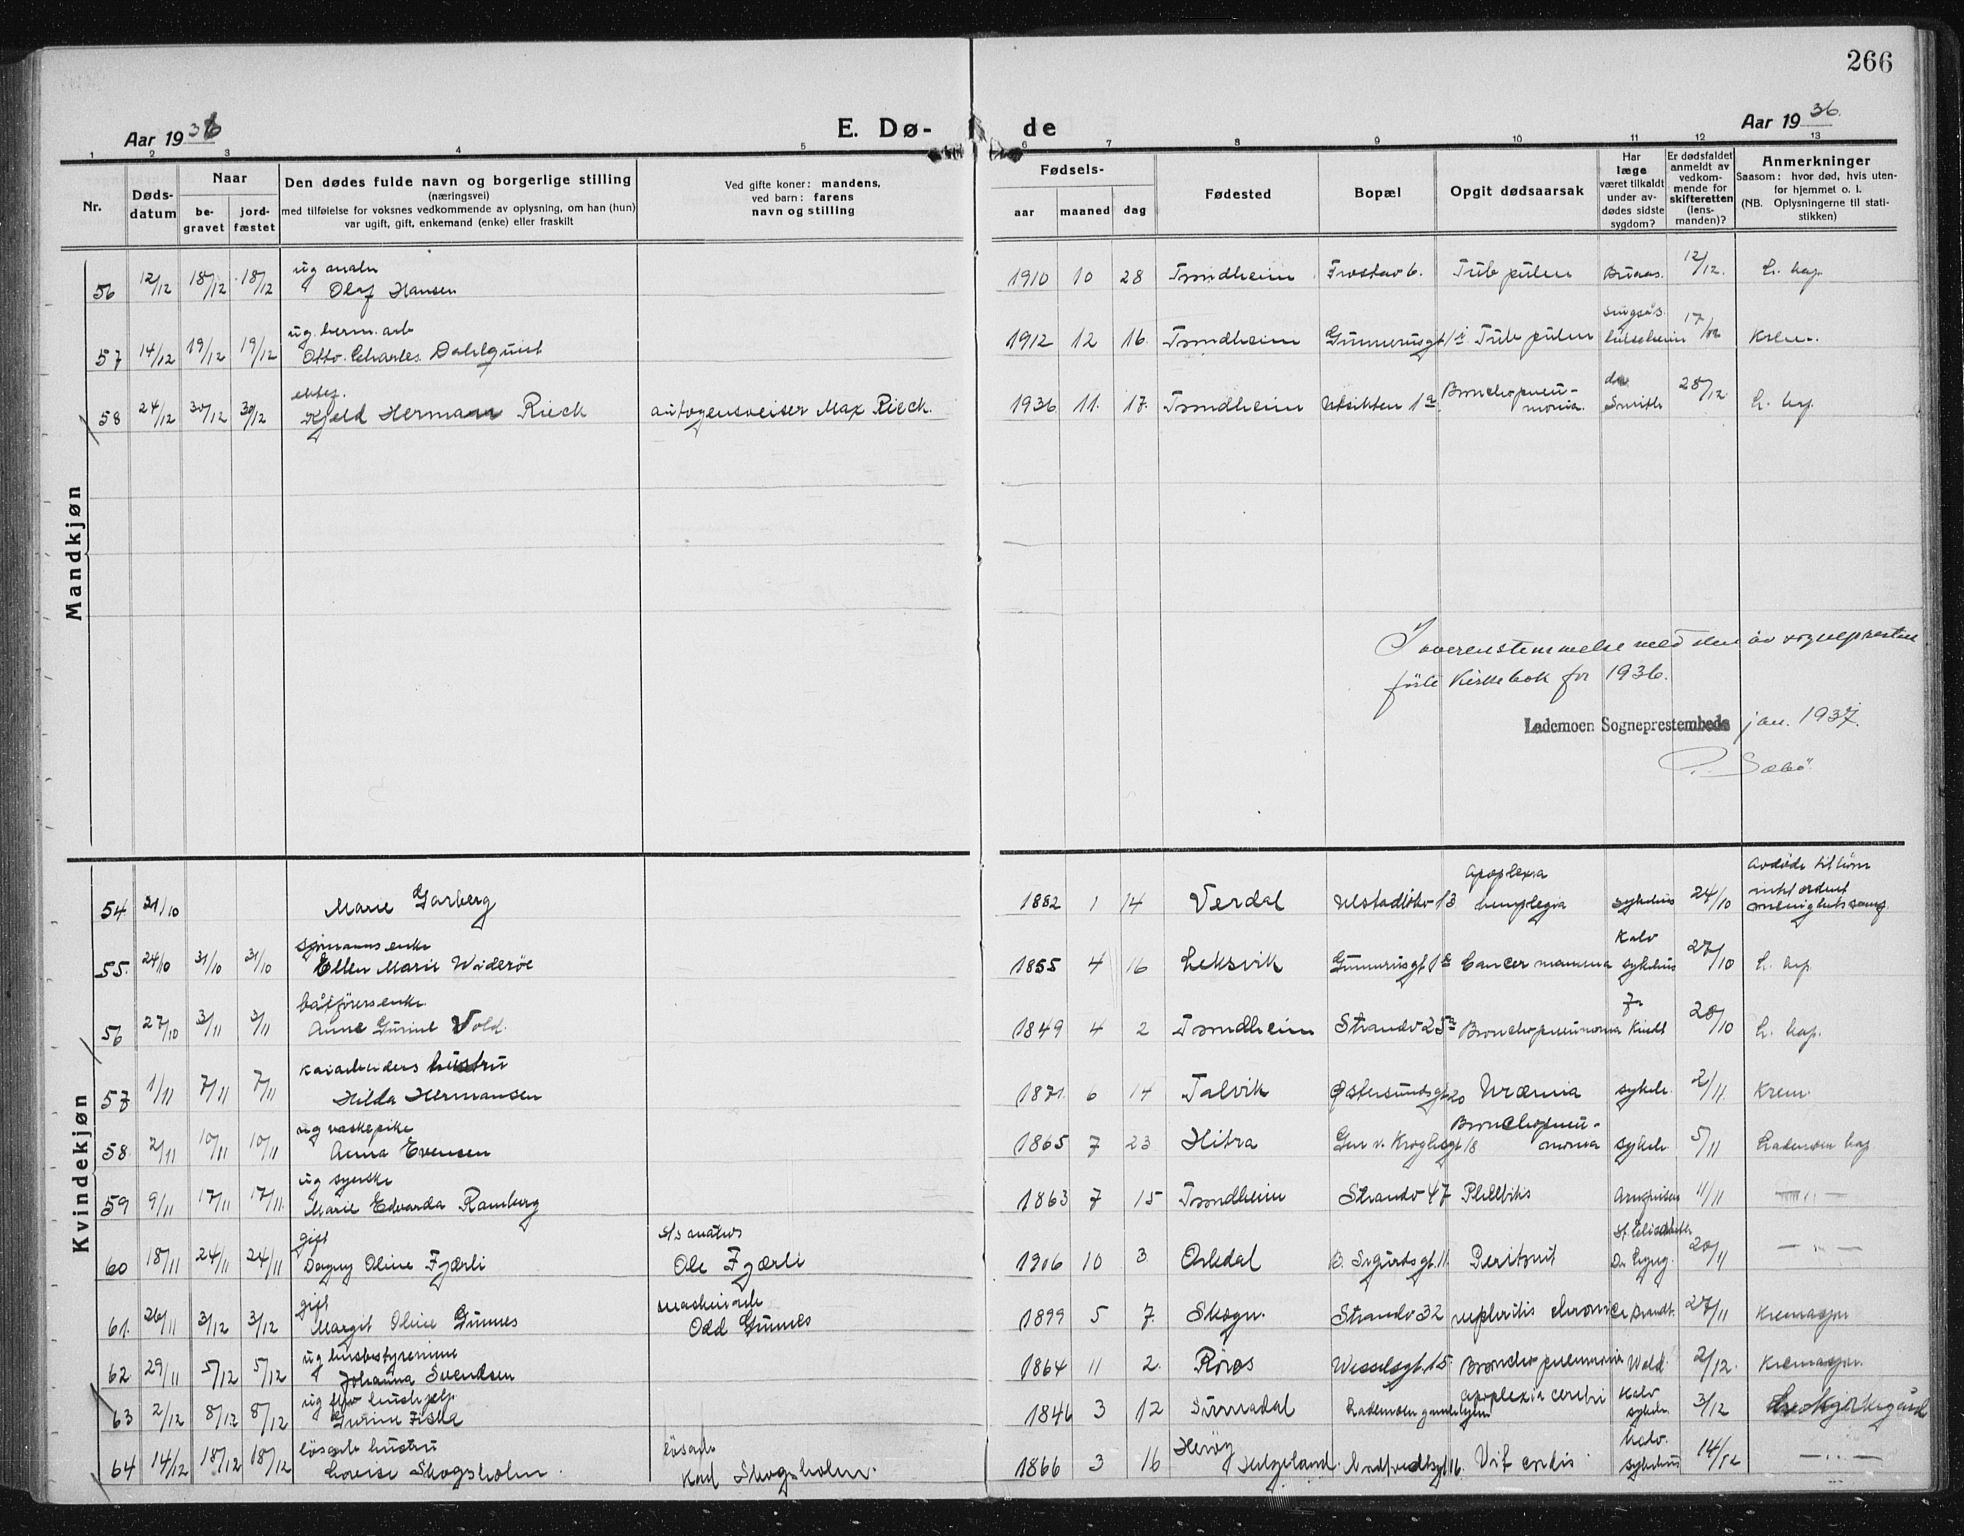 266
Aar 1936
E. Dø-
de
Aar 1936.
1 2 3 4 5 6 7 8 9 10 11 12 13
Nr.
Døds-
datum
Naar
be-
gravet
jord-
fæstet
Den dødes fulde navn og borgerlige stilling
(næringsvei)
med tilføielse for voksnes vedkommende av oplysning, om han (hun)
var ugift, gift, enkemand (enke) eller fraskilt
Ved gifte koner: mandens,
ved barn: farens
navn og stilling
Fødsels-
aar maaned dag
Fødested
Bopæl
Opgit dødsaarsak
Har
læge
været tilkaldt
under av-
dødes sidste
sygdom?
Er dødsfaldet
anmeldt av
vedkom-
mende for
skifteretten
(lens-
manden)?
Anmerkninger
Saasom: hvor død, hvis uten-
for hjemmet o. l.
(NB. Oplysningerne til stati-
stikken)
Mandkjøn
56 12/12 18/12 18/12 ug Olaf Hansen 1910 10 28 Trondheim Frostav 6. Tub pulm 12/12. L. kap.
57 14/12 19/12 19/12 ug. herm. arb Otto Charles Dahlquist 1912 12 16. Trondheim Gunnerusgt 1 Tub pulm 17/12 Krem.
58 24/12 30/12 30/12 ektef. Kjeld Hermann Rieck autogensveiser Max Rieck. 1936 11. 17. Trondheim Utsikten 1a. Bronchopneu-
monia. dr Smith 28/12. L. kap.
I overenstemmelse med den av sognepresten
førte Kirkebok for 1936.
Lademoen Sogneprestembede jan. 1937.
P. Sæbö.
Kvindekjøn
54 21/10 Marie Garberg 1882 1 14 Verdal Ulstadløkv 13 Apoplexia hemplegia sykehus 24/10 Avdøde tilhørn
55. 24/10 31/10 31/10 sjømanns enke Ellen Marie Widerøe 1855 4 16 Leksvik Gunnerusgt 1 Cancer mamma Kalv sykehus 27/10 L. kap.
56 27/10 3/11 3/11 båtførers enke. Anne Gurine Vold. 1849 4 2 Trondheim Strandv 25a Bronchopneumonia 28/10 L. kap.
57 1/11 7/11 7/11 kaiarbeiders hustru Hilda Hermansen 1871. 6 14 Talvik Østersundsgt 20 Uræmia sykeh. 2/11. Krem.
58. 2/11 10/11 10/11 ug vaskepike Anna Evensen 1865 7 23 Hitra Gen v. Kroghsgt 18 Bronchopneu-
monia sykeh. 5/11 Lademoen kap
59 9/11 17/11 17/11. ug syerske Marie Edvarda Ramberg 1863 7 15 Trondheim Strandv 47 Phlebitis 11/11 —„—
60 18/11 24/11 24/11 gift Dagny Oline Fjærli Ole Fjærli 1906 10 3 Orkdal B. Sigurdsgt 11. Peritonit St Elisabeth 20/11 —„—
61. 26/11 3/12 3/12 gift Margit Oline Gunnes maskinarb Odd Gunnes 1899 5 7. Skogn. Strandv 32 nephritis chronica Brandt. 27/11 Kremasjon
62 29/11 5/12 5/12 ug husbestyrerinne Johanna Svendsen 1864 11 2. Røros Wesselsgt. 15. Bronchopneumonia Wold. 2/12. Kremasjon.
63 2/12 8/12 8/12 ug Gurine Fiska 1846 3 12 Surnadal Lademoen gamlehjem apoplexia cerebri Kalv sykeh 3/12
64 14/12 18/12 18/12 løsarb hustru Lovise Skogsholm. løsarb Karl Skogsholm. 1866 3 16 Herøy Helgeland. 16. Vit cordis Kalv. sykehus 14/12 —„—